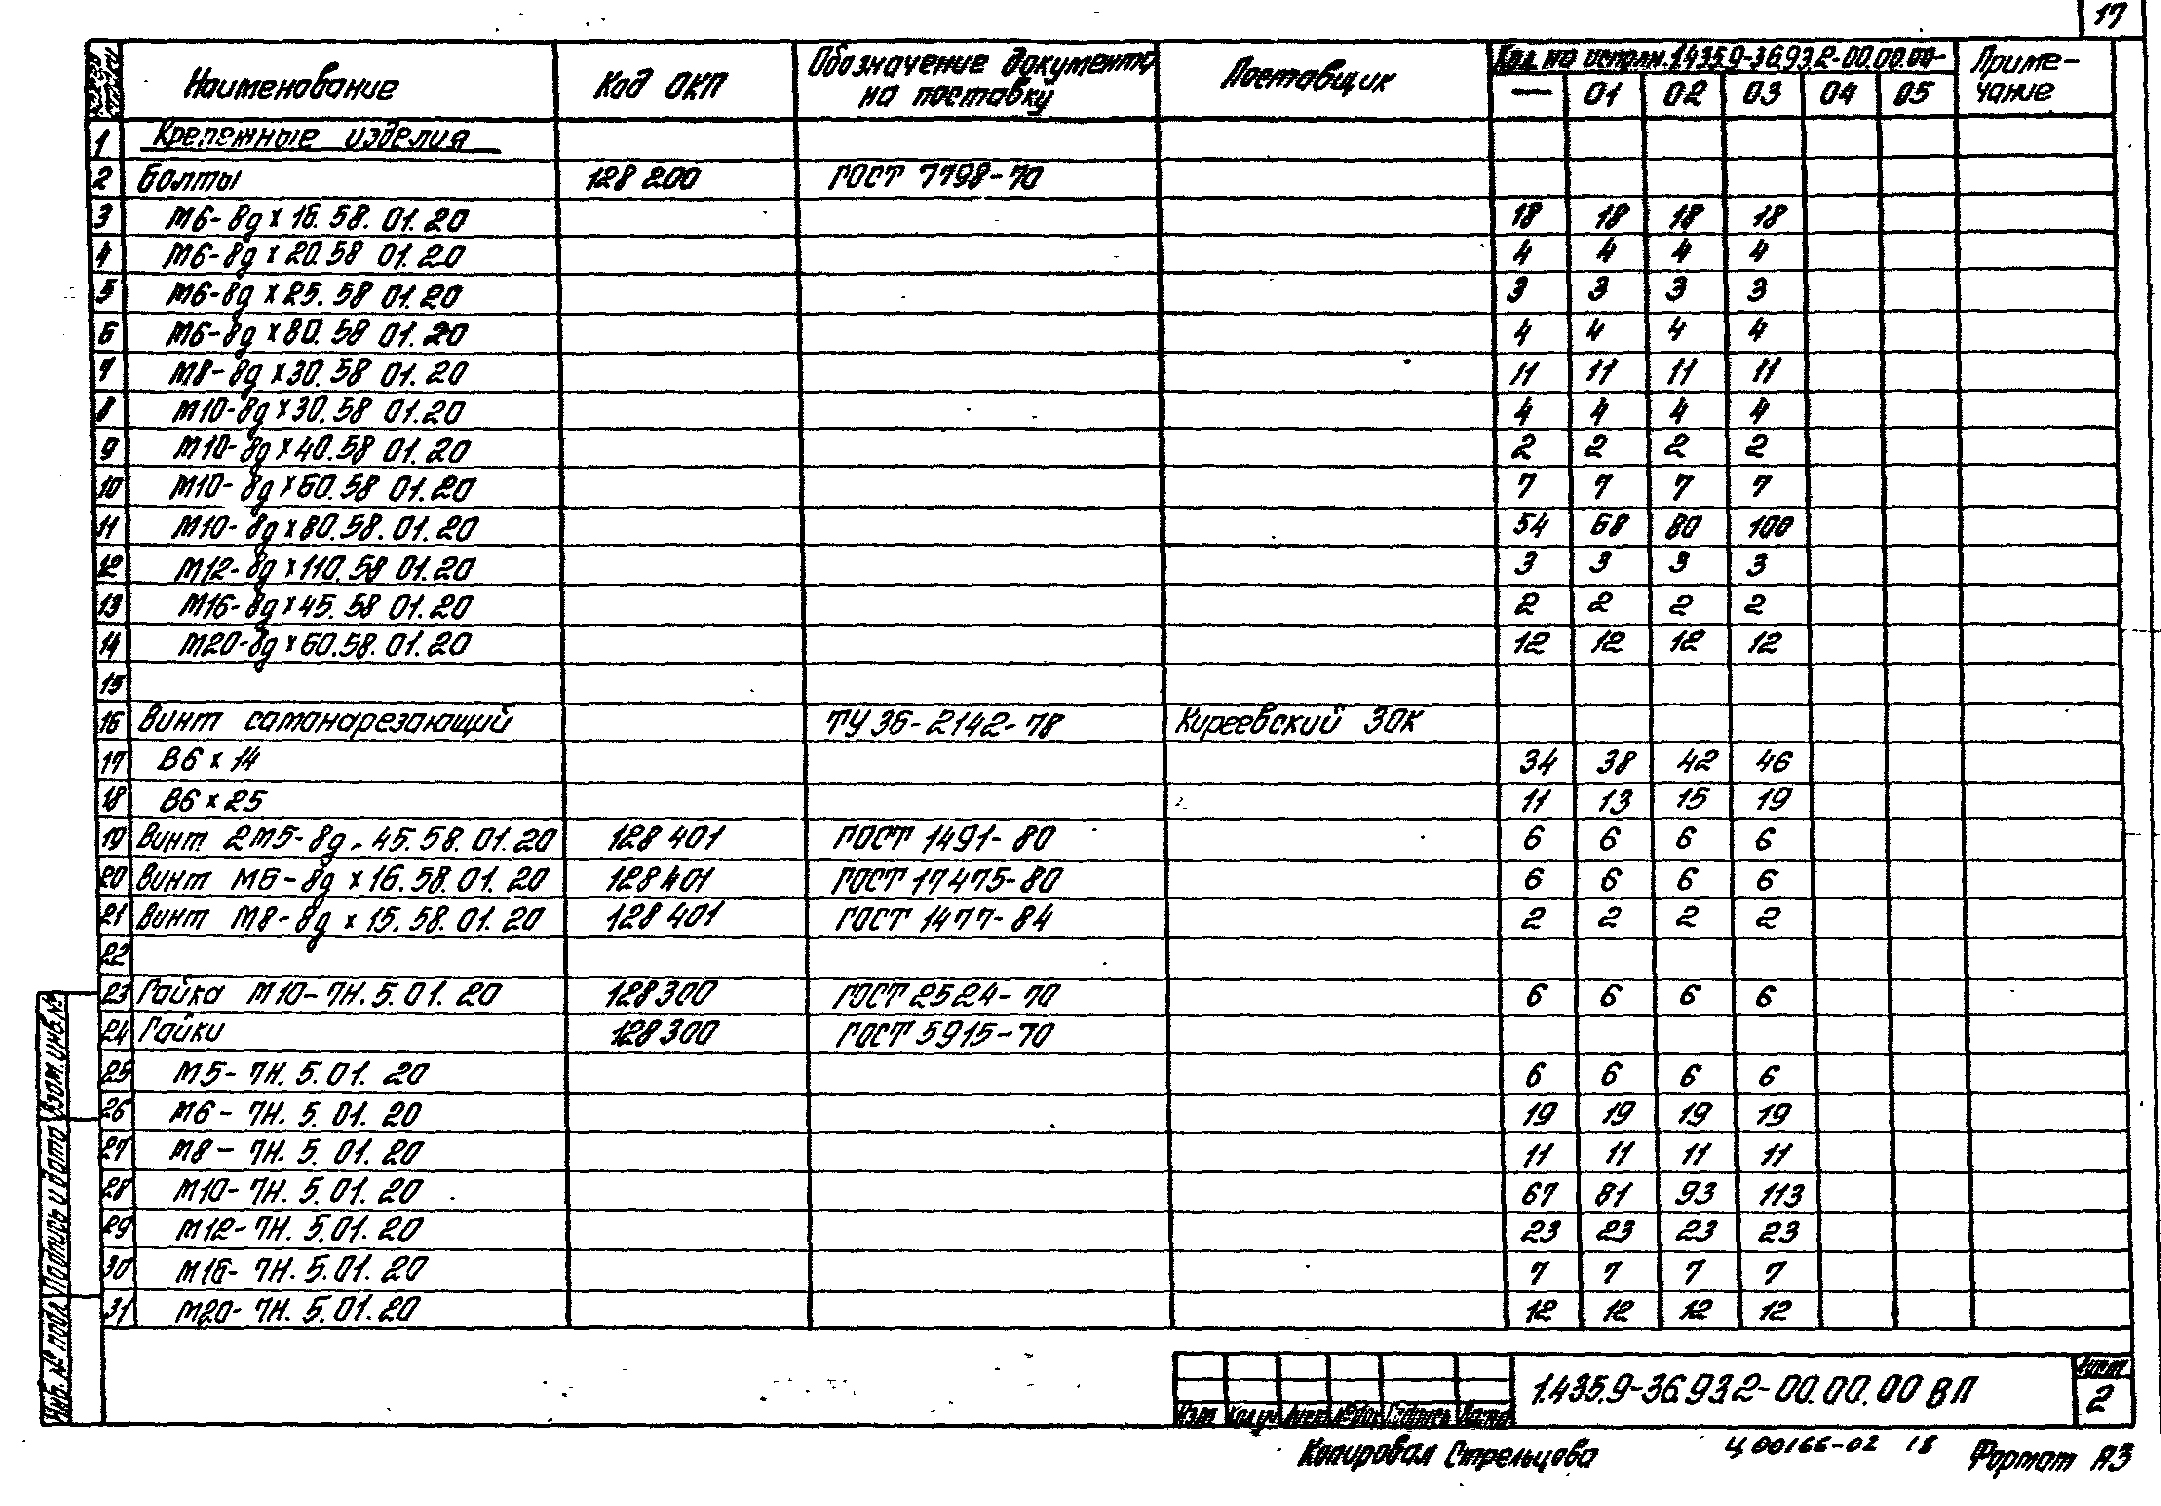 17
№ строки Наименование Код ОКП Обозначение документа на поставку Поставщик Кол. на исполн. 1.435.9-36.93.2-00.00.00- Приме-
— 01 02 03 04 05 чание
1 Крепежные изделия
2 Болты 128 200 ГОСТ 7798-70
3 М6-8g х 16.58.01.20 18 18 18 18
4 М6-8g х 20.58 01.20 4 4 4 4
5 М6-8g х 25.58 01.20 3 3 3 3
6 М6-8g х 80.58 01.20 4 4 4 4
7 М8-8g х 30.58 01.20 11 11 11 11
8 М10-8g х 30.58 01.20 4 4 4 4
9 М10-8g х 40.58 01.20 2 2 2 2
10 М10-8g х 60.58 01.20 7 7 7 7
11 М10-8g х 80.58.01.20 54 68 80 100
12 М12-8g х 110.58 01.20 3 3 3 3
13 М16-8g х 45.58 01.20 2 2 2 2
14 М20-8g х 60.58.01.20 12 12 12 12
15
16 Винт самонарезающий ТУ 36-2142-78 Киреевский ЗОК
17 В6 х 14 34 38 42 46
18 В6 х 25 11 13 15 19
19 Винт 2М5-8g - 45.58.01.20 128 401 ГОСТ 1491-80 6 6 6 6
20 Винт М6-8g х 16.58.01.20 128401 ГОСТ 17475-80 6 6 6 6
21 Винт М8-8g х 15.58.01.20 128 401 ГОСТ 1477-84 2 2 2 2
22
23 Гайка М10-7Н.5.01.20 128300 ГОСТ 2524-70 6 6 6 6
24 Гайки 128300 ГОСТ 5915-70
25 М5-7Н.5.01.20 6 6 6 6
26 М6-7Н.5.01.20 19 19 19 19
27 М8-7Н.5.01.20 11 11 11 11
28 М10-7Н.5.01.20 67 81 93 113
29 М12-7Н.5.01.20 23 23 23 23
30 М16-7Н.5.01.20 7 7 7 7
31 М20-7Н.5.01.20 12 12 12 12
Инв. № подл. Подпись и дата Взам. инв. №
Изм Кол.уч Лист №док Подпись Дата
1.435.9-36.93.2-00.00.00 ВП
Лист
2
Копировал Стрельцова Ц00166-02 18 Формат А3